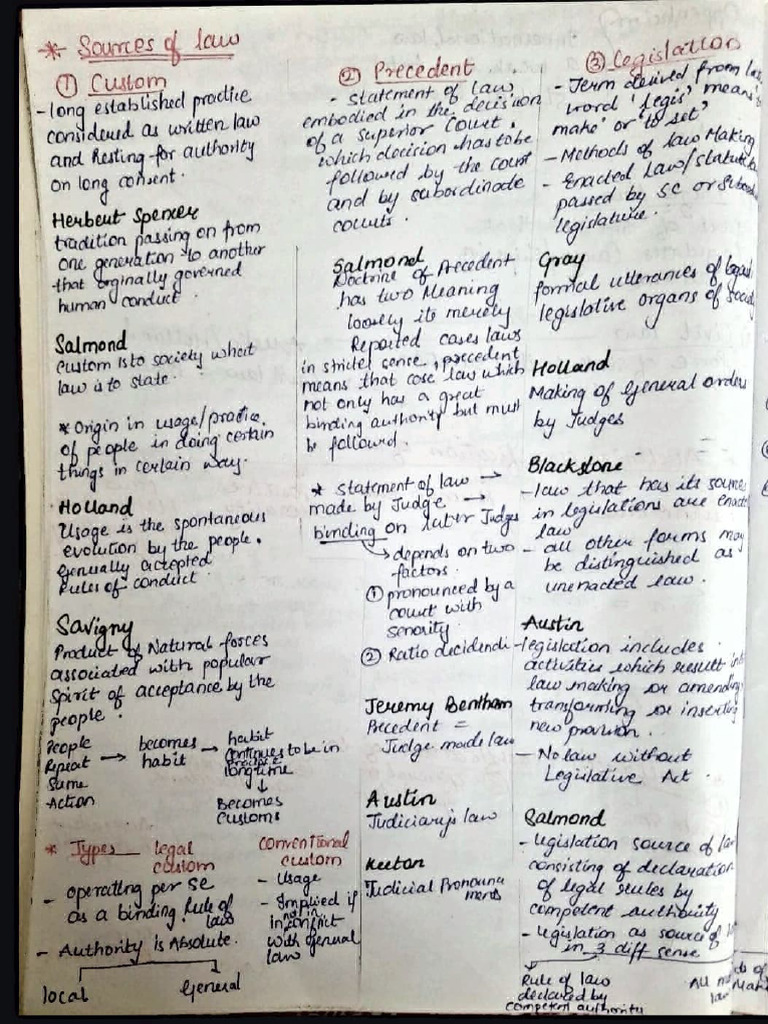 * Sources of law
① Custom
- long established practice
considered as written law
and Resting for authority
on long consent.
Herbert Spencer
tradition passing on from
one generation to another
that orginally governed
human conduct.
Salmond
Custom is to society what
law is to state.
* Origin in usage/practice
of people in doing certain
things in certain way.
Holland
Usage is the spontaneous
evolution by the people.
Genually accepted
Rules of conduct
Savigny
Product of Natural forces
associated with popular
Spirit of acceptance by the
people.
People
Repeat → becomes → habit
Same habit continues to be in
Action longtime
↓
Becomes
Customs
* Types legal
custom
- operating per se
as a binding Rule of
law
- Authority is Absolute.
local General
Conventional
custom
- Usage
- Implied if
not in
inconflict
with general
law
② Precedent
- Statement of law
embodied in the decision
of a Superior Court.
which decision has to be
followed by the court
and by subordinade
courts.
Salmond
Doctrine of Precedent
has two Meaning
loosely its merely
Reported cases laws
in stricter sense, precedent
means that case law which
not only has a great
binding authority but must
be followed.
* Statement of law →
made by Judge →
binding on later Judges
→ depends on two
factors.
① pronounced by a
court with
senority.
② Ratio decidendi
Jeremy Bentham
Precedent =
Judge made law
Austin
Judiciary's law
Keeton
Judicial Pronounce
ments
③ Legislation
- Term derived from
word 'legis' means
make' or 'to set'
- Methods of law Making
- Enacted law/
passed by SC or
legislature.
Gray
formal utterances of
legislative organs of
Holland
Making of General orders
by Judges
Blackstone
- law that has its
in legislations are
law
- all other forms may
be distinguished as
unenacted law.
Austin
- legislation includes
activities which result
law making or
transforming or
new provision.
- No law without
Legislative Act.
Salmond
- legislation source of
consisting of declaration
of legal rules by
competent authority
- legislation as source of
in 3 diff sense
Rule of law
declared by
competent authority